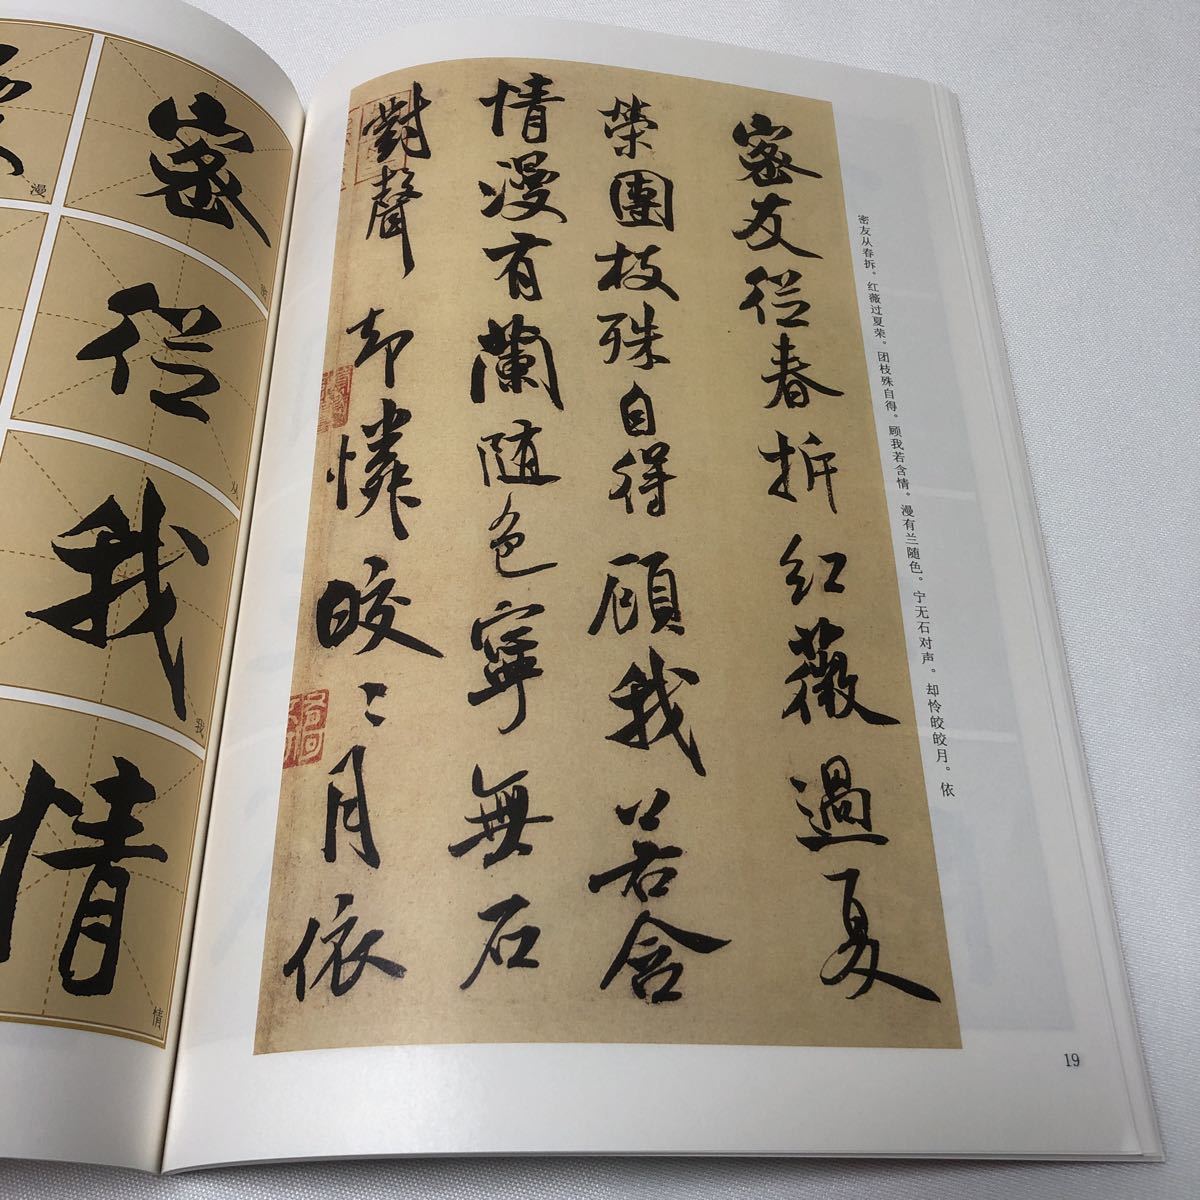 密友从春拆。红薇过夏荣。团枝殊自得。顾我若含情。漫有兰随色。宁无石对声。却怜皎皎月。依
密友從春拆紅薇過夏
榮團枝殊自得顧我若含
情漫有蘭随色寧無石
對聲却憐皎〻月依
19
密
從
从
我
我
情
情
漫